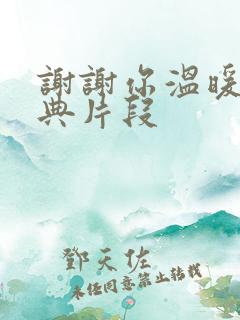 謝謝你溫暖
典片段
鄧天佐
未經同意禁止轉載